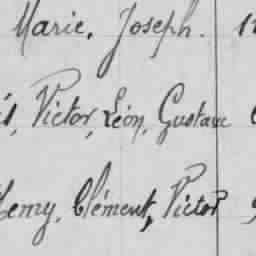 Marie, Joseph.
Victor, Léon, Gustave
Henry, Clément, Victor